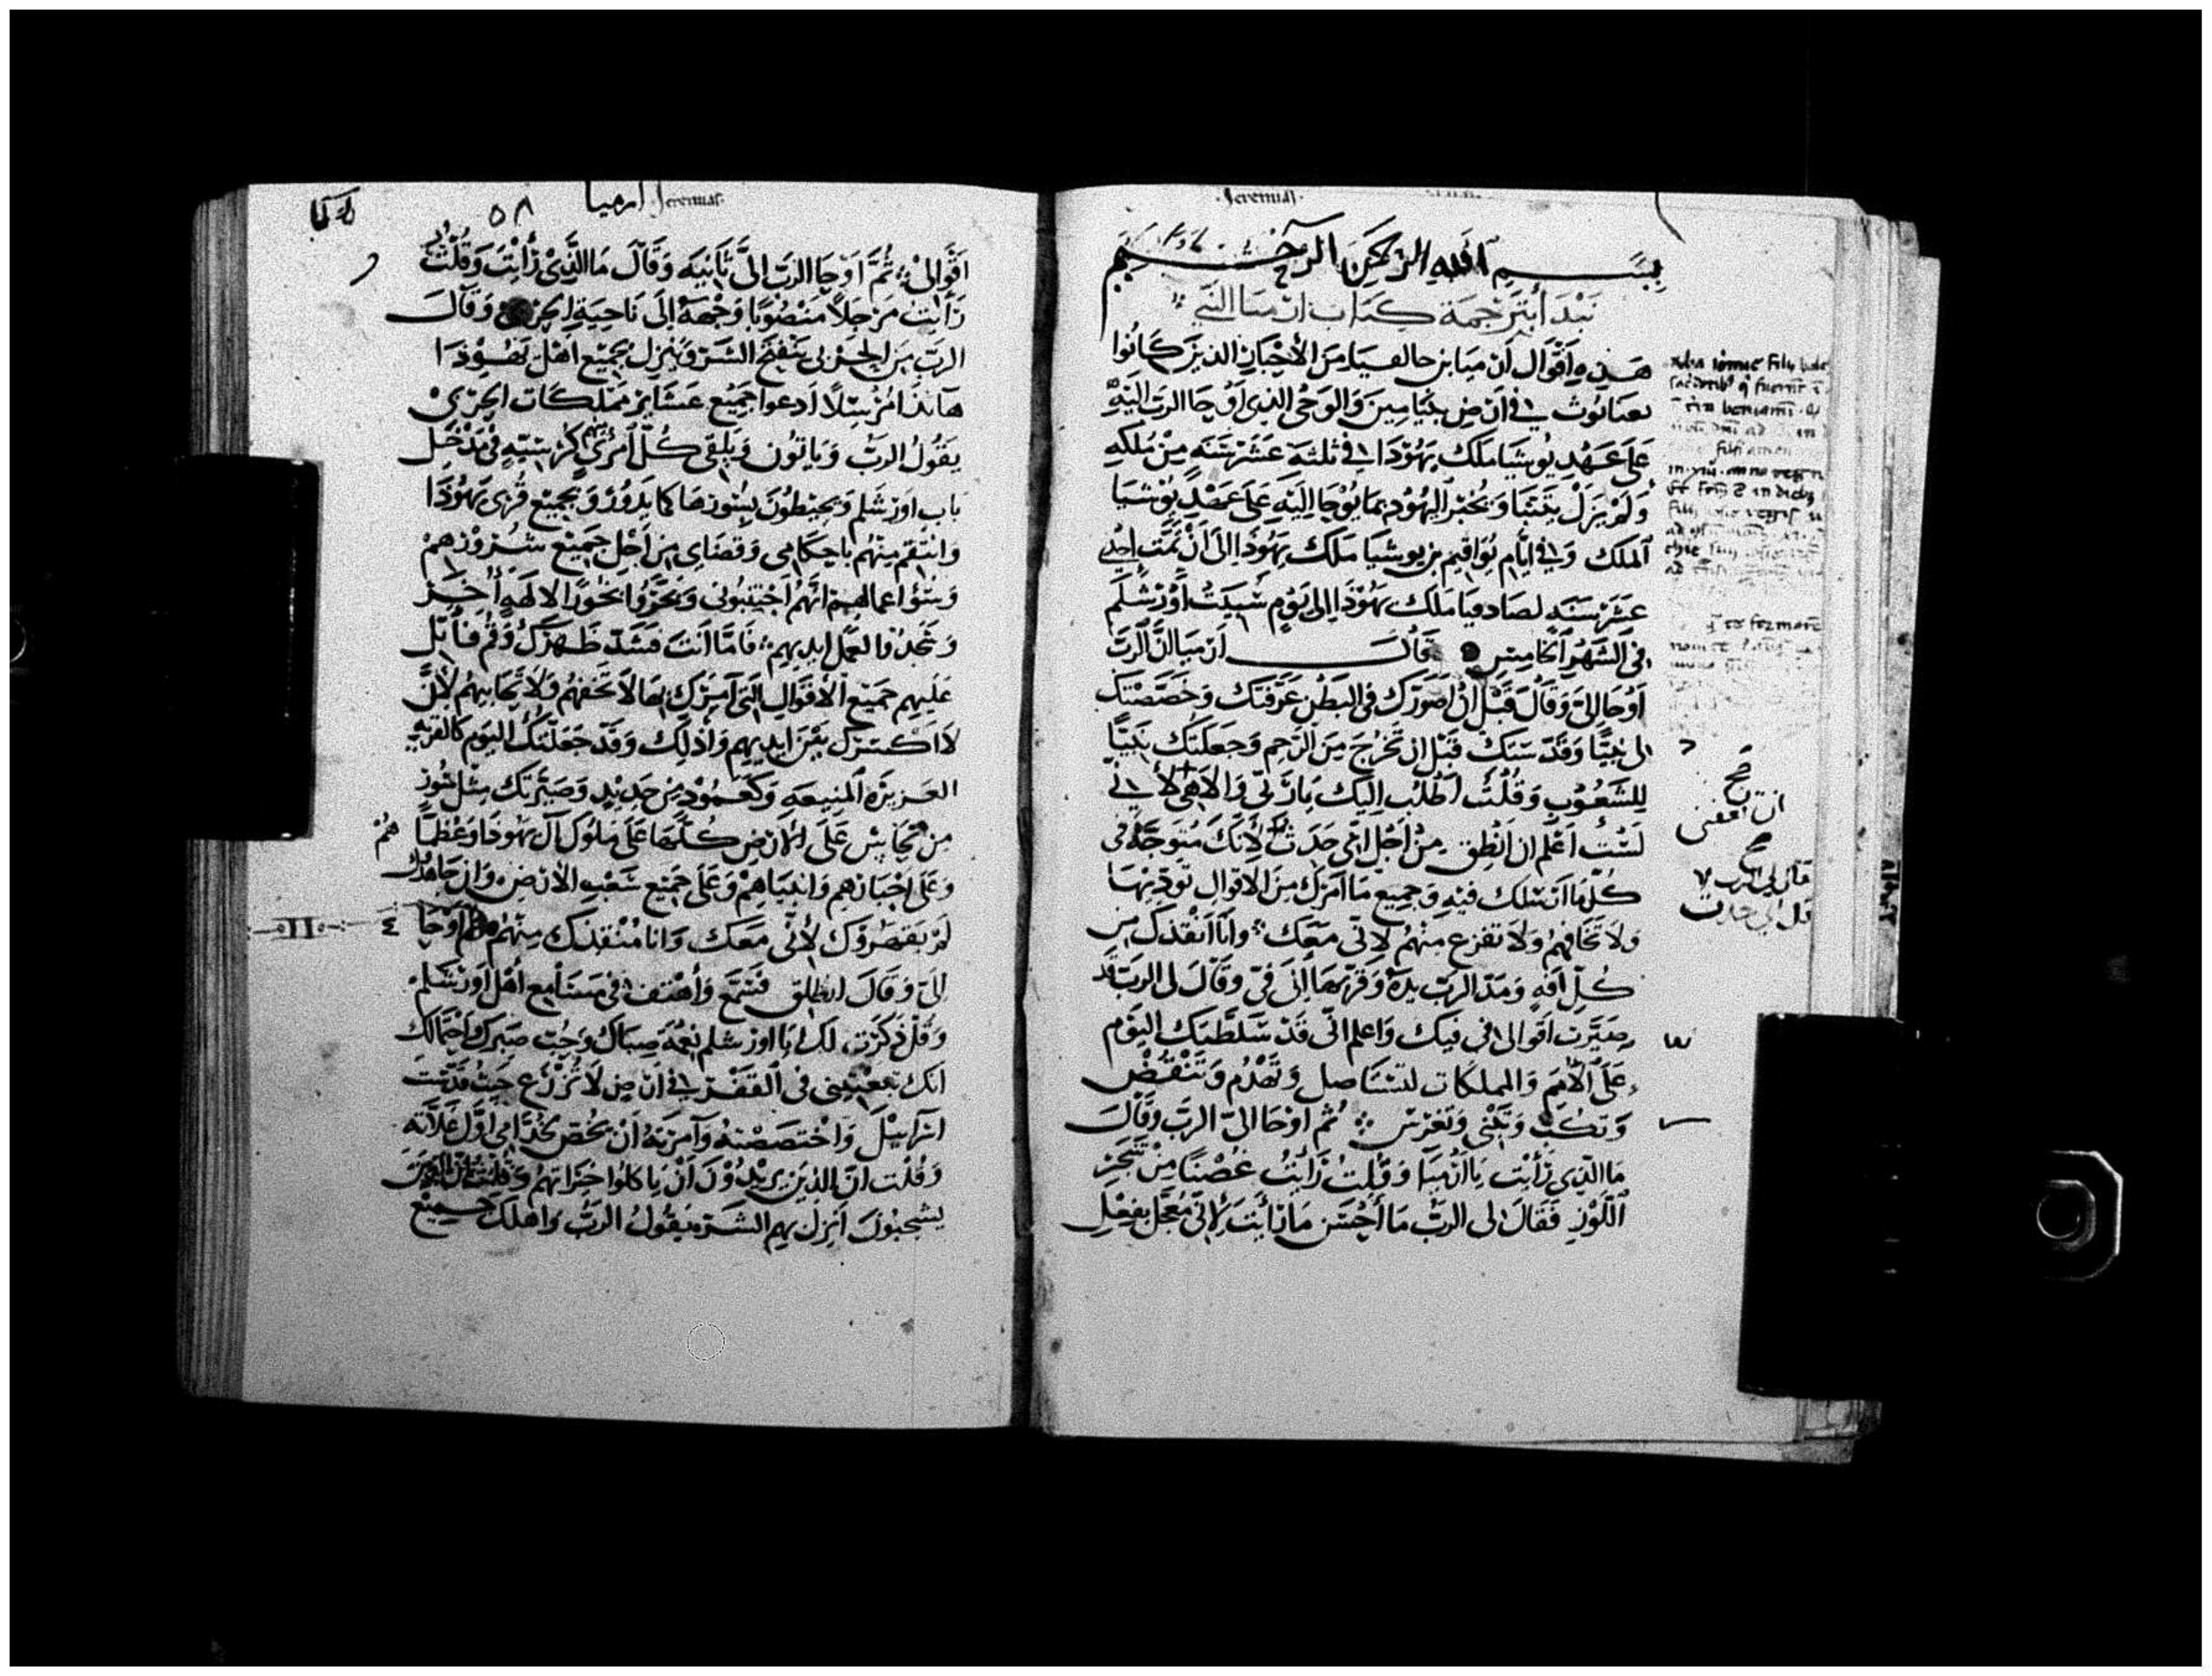 Jeremias
بسم الله الرحمن الرحيم
نبدا بترجمة كتاب ارميا النبي
هذه اقوال ارميا بن حالقيا من الأحبار الذين كانوا
بعناثوث في ارض بنيامين والوحي الذي أوحا الرب اليه
على عهد يوشيا ملك يهودا في ثلثة عشر سنة من ملكه
ولم يزل يتنبا ويخبر اليهود بما يوحا اليه على عهد يوشيا
الملك وفي ايام يواقيم بن يوشيا ملك يهوذا الى أن تمت احدى
عشر سنه لصادقيا ملك يهوذا الى يوم سبيت أورشلم
في الشهر الخامس قال ارميا ان الرب
أوحا إلي وقال قبل أن أصورك في البطن عرفتك وخصصتك
لي نبيا وقدستك قبل ان تخرج من الرحم وجعلتك نبيا
للشعوب وقلت أطلب إليك يا ربي والاهي لأني
لست أعلم ان انطق من أجل اني حدث لأنك متوجه في
كل ما ارسلك فيه وجميع ما آمرك من الاقوال تودينها
ولا تخافهم ولا تفزع منهم لاني معك وأنا أنقذك من
كل آفه ومد الرب يده وقربها إلى في وقال لي الرب قد
صيرت اقوالي في فيك واعلم اني قد سلطتك اليوم
على الأمم والمملكات لتستاصل وتهدم وتنقض
وتكب وتبني وتغرس ثم اوحا الي الرب وقال
ما الذي رأيت يا ارميا وقلت رأيت غصنا من شجر
اللوز فقال لي الرب ما أحسن ما رأيت لأني معجل بفعل
صح
صح
قال لي الرب لا
ارميا Jeremias
٥٨
اقوالي ثم اوحا الرب الي ثانيه وقال ما الذي رأيت وقلت
رأيت مرجلا منصوبا وجهه إلى ناحية الجربي وقال
الرب من الجربي ينفتح الشر وينزل بجميع اهل يهوذا
هانذا مرسلا ادعوا جميع عشاير مملكات الجربي
يقول الرب وياتون ويلقى كل امرئ منهم كرسيه في مدخل
باب اورشلم ويحيطون بسورها كما يدور وبجميع قرى يهوذا
وانتقم منهم باحكامي وقضاي من أجل جميع شرورهم
وسؤ اعمالهم انهم اجتنبوني وبخروا بخورا لالهه أخر
وسجدوا لعمل ايديهم فاما انت فشد ظهرك وقم فاتل
عليهم جميع الأقوال التي آمرك بها لا تخفهم ولا تحابيهم لأن
لا اكسرك بين ايديهم واذلك وقد جعلتك اليوم كالقرية
العزيزه المنيعه وكعمود من حديد وصيرتك مثل سور
من نحاس على الارض كلها على ملوك آل يهوذا وعظماهم
وعلى احبارهم وانبياهم وعلى جميع شعب الارض وان جاهدوك
لم يقهروك لأني معك وانا منقذك منهم ثم اوحا
إلي وقال انطلق فسمع وأهتف في مسامع أهل أورشلم
وقل ذكرت لك يا اورشلم نعمة صباك وحب صبرك واحتمالك
انك تبعتيني في القفر في ارض لا تزرع حيث قدست
اسراييل واختصصته وآمرته أن يخص خدامي أول غلاته
وقلت ان الذين يريدون أن ياكلوا خيراتهم
يشجبون انزل بهم الشر يقول الرب واهلك جميع